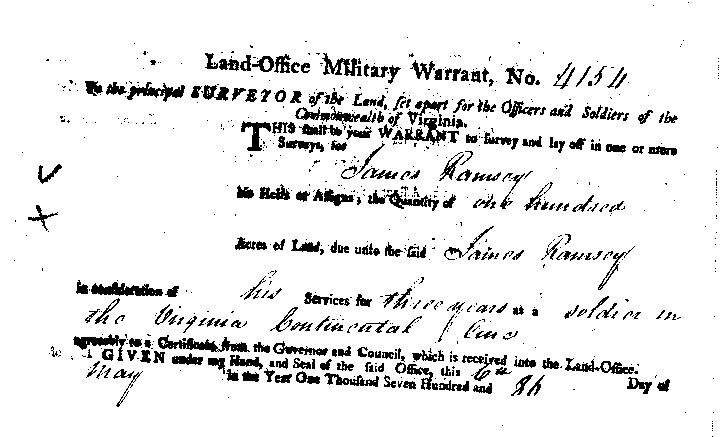 Land-Office Military Warrant, No. 4154
To the principal SURVEYOR of the Land, set apart for the Officers and Soldiers of the
Commonwealth of Virginia.
THIS shall be your WARRANT to survey and lay off in one or more
Surveys, for
James Ramsey
his Heirs or Assigns, the Quantity of one hundred
Acres of Land, due unto the said James Ramsey
in consideration of his Services for three years as a soldier in
the Virginia Continental Line
agreeably to a Certificate from the Governor and Council, which is received into the Land-Office.
GIVEN under my Hand, and Seal of the said Office, this 6th Day of
May in the Year One Thousand Seven Hundred and 86